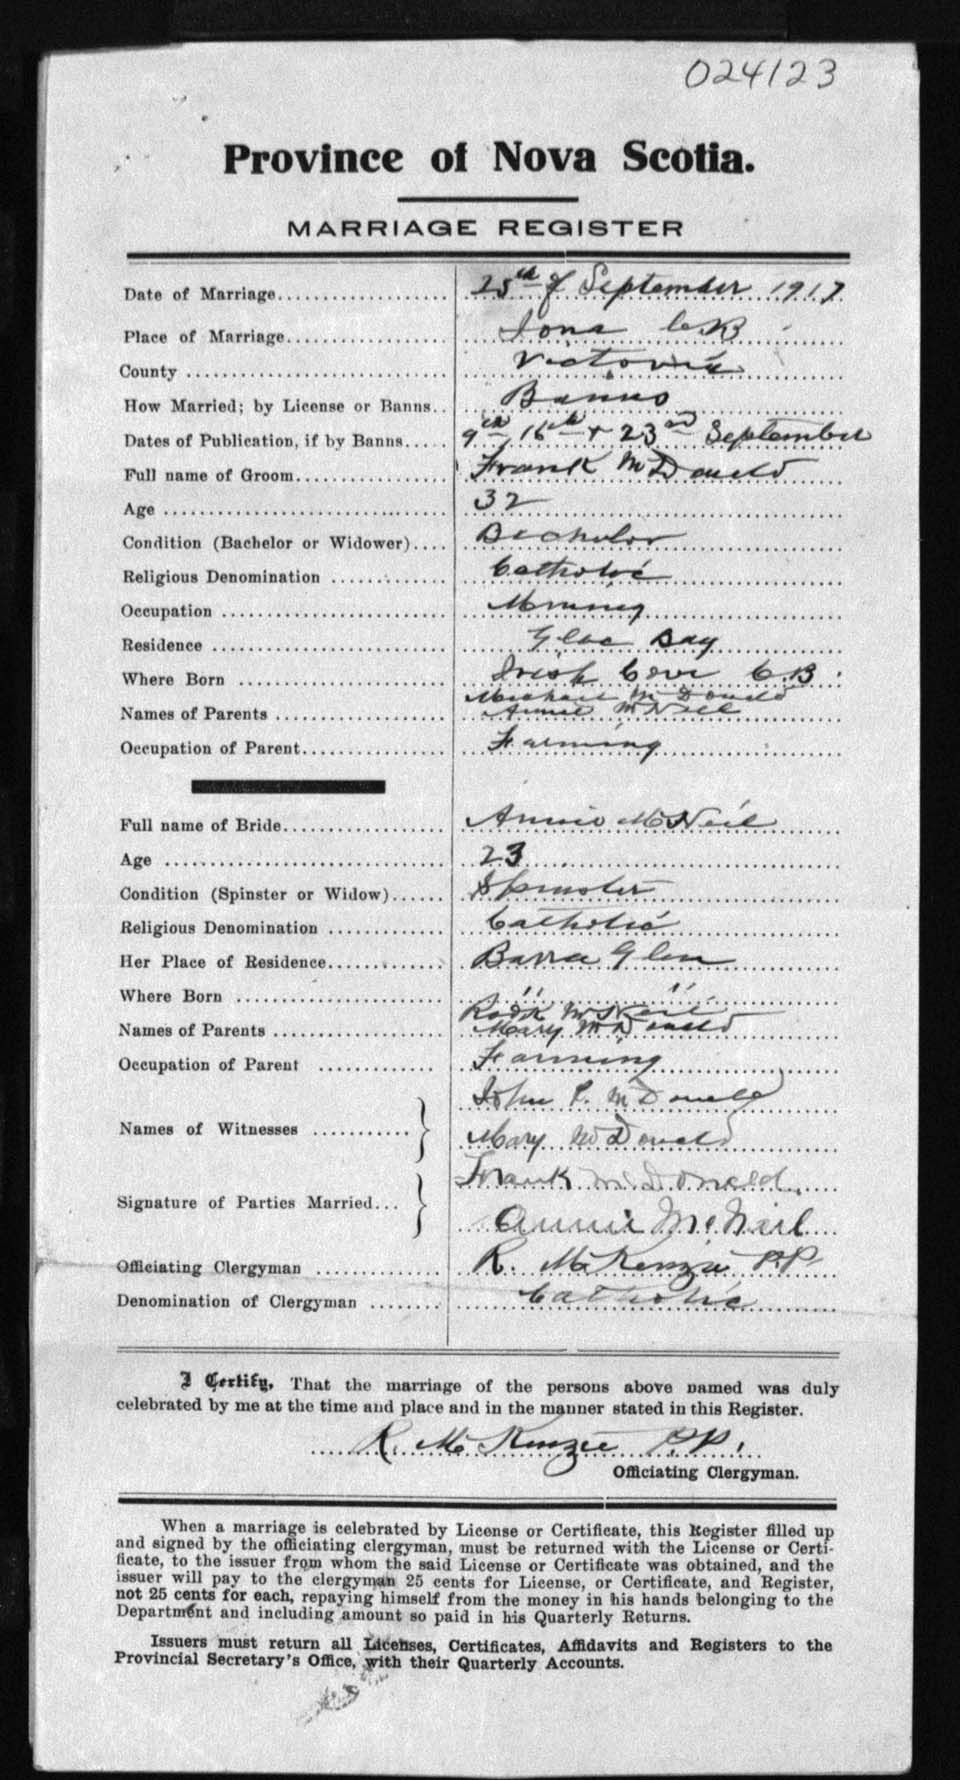 024123
Province of Nova Scotia.
MARRIAGE REGISTER
Date of Marriage 25th of September 1917
Place of Marriage Iona C B
County Victoria
How Married; by License or Banns Banns
Dates of Publication, if by Banns 9th, 16th + 23rd September
Full name of Groom Frank McDonald
Age 32
Condition (Bachelor or Widower) Bachelor
Religious Denomination Catholic
Occupation Mining
Residence Glace Bay
Where Born Irish Cove C.B
Names of Parents Michael McDonald
Annie McNeil
Occupation of Parent Farming
Full name of Bride Annie McNeil
Age 23
Condition (Spinster or Widow) Spinster
Religious Denomination Catholic
Her Place of Residence Barra Glen
Where Born " "
Names of Parents Rodk McNeil
Mary McDonald
Occupation of Parent Farming
Names of Witnesses John P. McDonald
Mary McDonald
Signature of Parties Married Frank McDonald.
Annie McNeil
Officiating Clergyman R. McKenzie P.P.
Denomination of Clergyman Catholic
I Certify, That the marriage of the persons above named was duly
celebrated by me at the time and place and in the manner stated in this Register.
R. McKenzie P.P.
Officiating Clergyman.
When a marriage is celebrated by License or Certificate, this Register filled up
and signed by the officiating clergyman, must be returned with the License or Certi-
ficate, to the issuer from whom the said License or Certificate was obtained, and the
issuer will pay to the clergyman 25 cents for License, or Certificate, and Register,
not 25 cents for each, repaying himself from the money in his hands belonging to the
Department and including amount so paid in his Quarterly Returns.
Issuers must return all Licenses, Certificates, Affidavits and Registers to the
Provincial Secretary's Office, with their Quarterly Accounts.